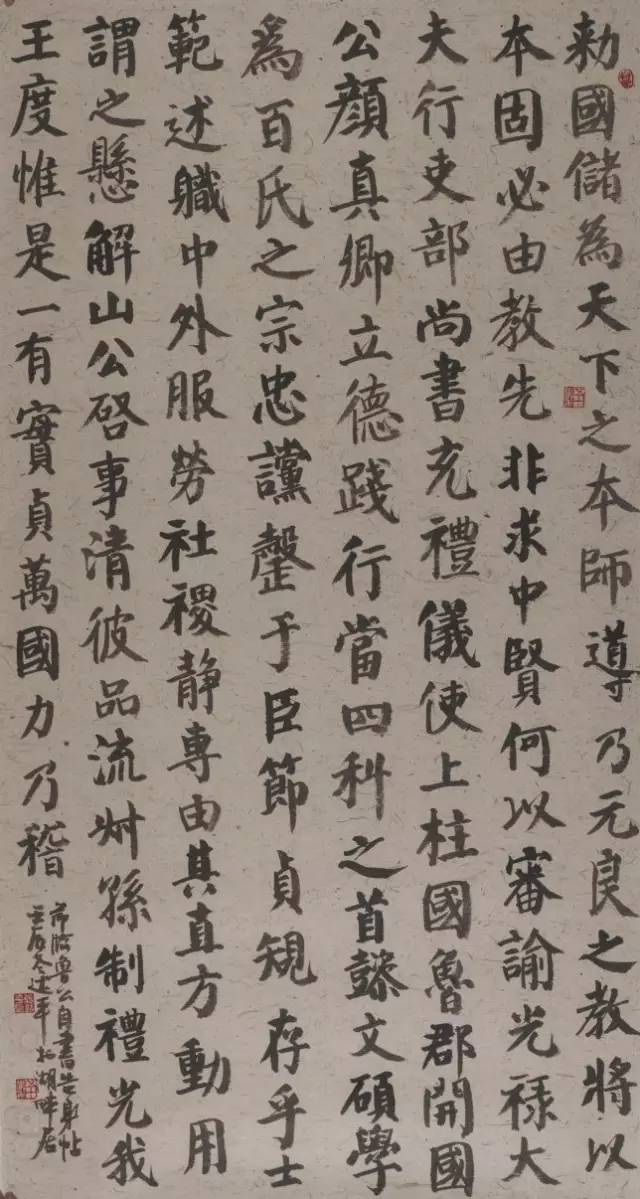 勑國儲為天下之本師導乃元良之教將以
本固必由教先非求中賢何以審諭光禄大
夫行吏部尚書充禮儀使上柱國魯郡開國
公顏真卿立德踐行當四科之首懿文碩學
為百氏之宗忠讜罄于臣節貞規存乎士
範述職中外服勞社稷静專由其直方動用
謂之懸解山公啓事清彼品流叔孫制禮光我
王度惟是一有實貞萬國力乃稽
節臨魯公自書告身帖
冬達平於湖畔居